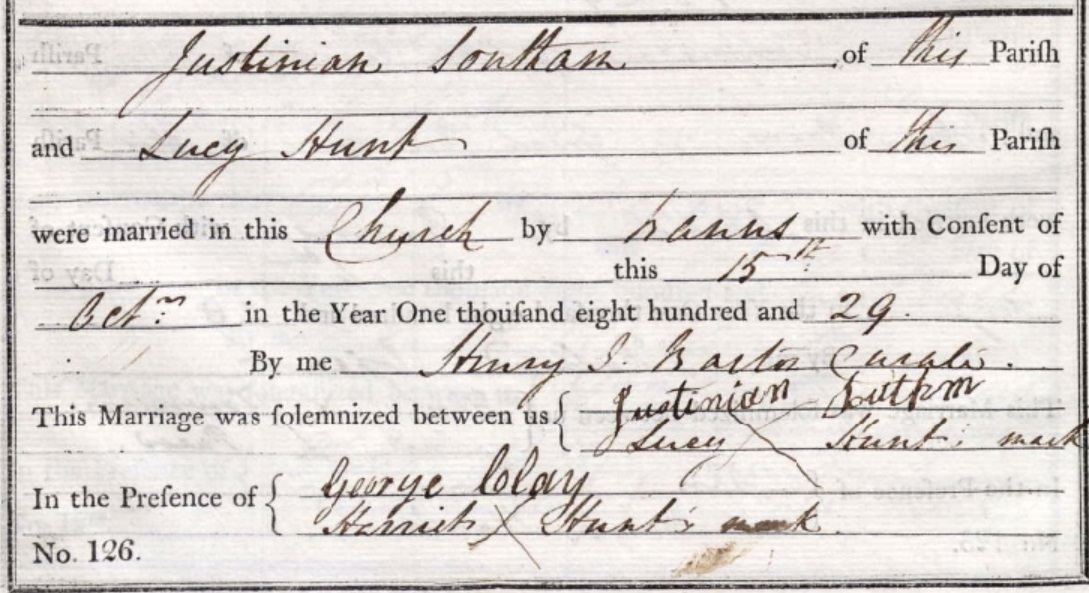 Justinian Southam of this Pariſh
and Lucy Hunt of this Pariſh
were married in this Church by banns with Conſent of
this 15th Day of
Octr in the Year One thouſand eight hundred and 29.
By me Henry J. Barton Curate.
This Marriage was ſolemnized between us { Justinian Suthm
Lucy X Hunt's mark
In the Preſence of { George Clay
Harriet X Hunt's mark
No. 126.